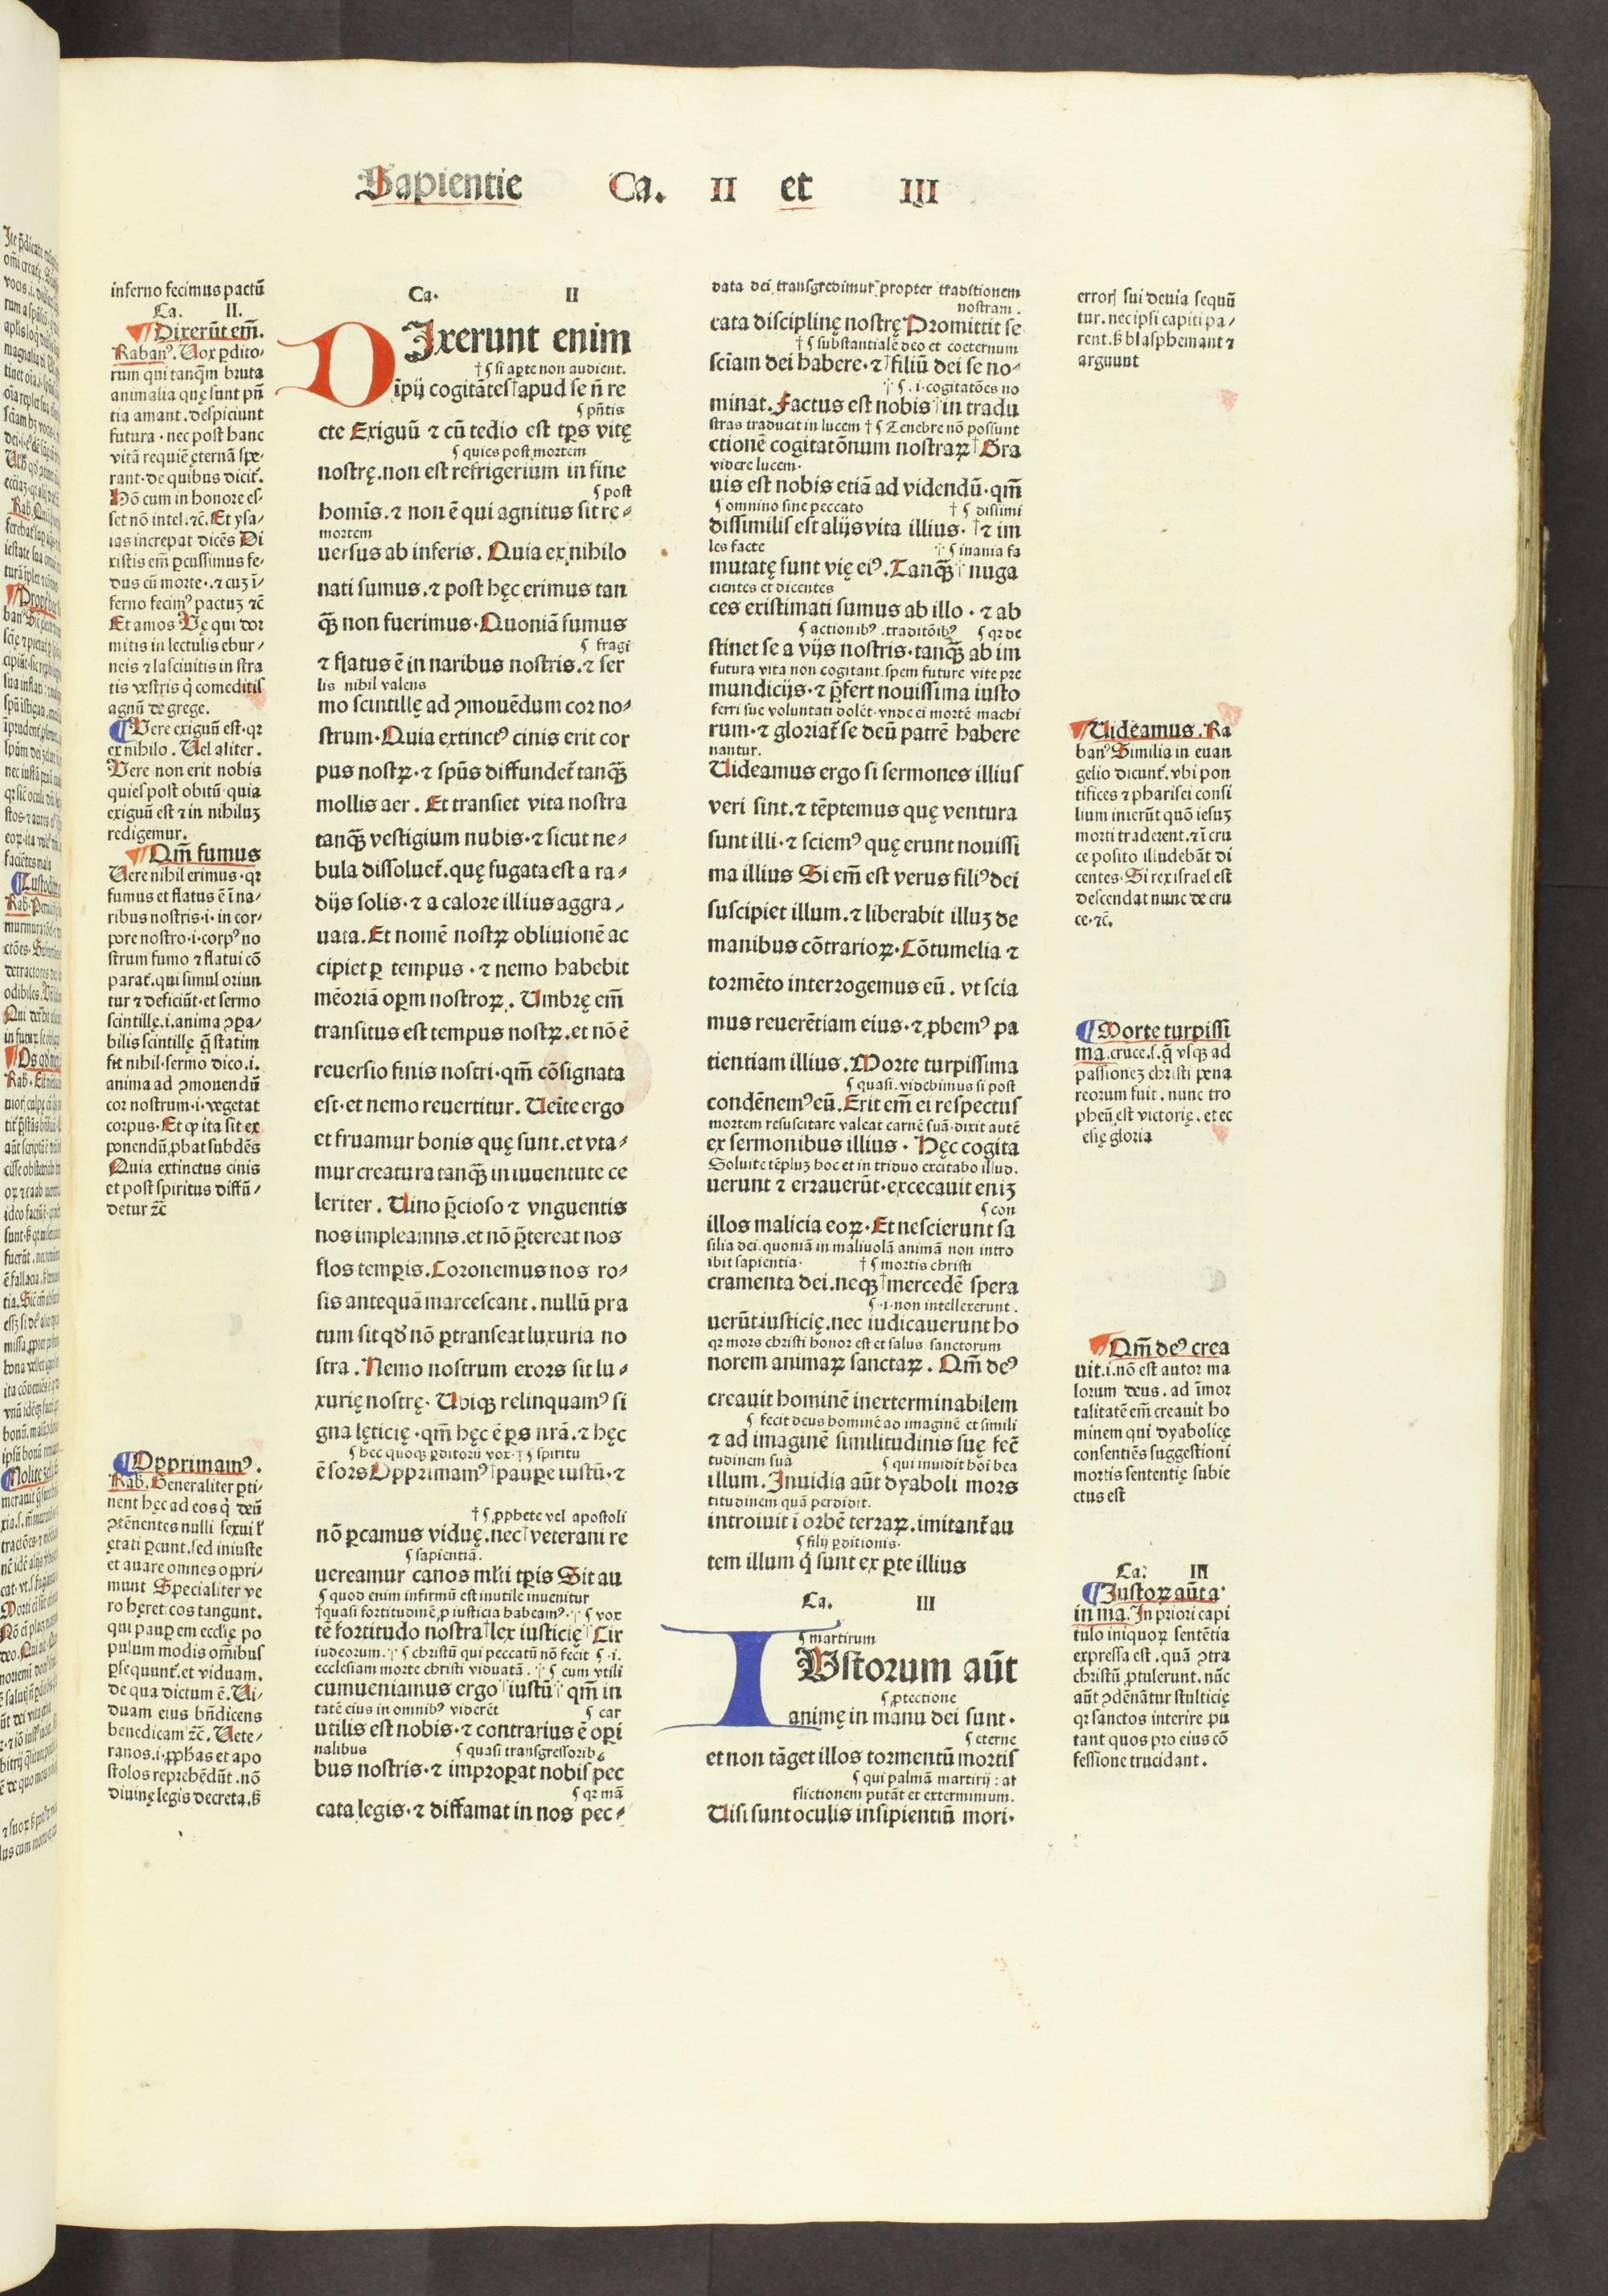 Sapientie Ca. II et III
inferno fecimus pactū
Ca. II.
Dixerūt em̄.
Rabanꝰ. Uox ꝑdito/
rum qui tanq̄m bruta
animalia quę sunt pn̄
tia amant. despiciunt
futura. nec post hanc
vitā requiē ęternā spe/
rant. de quibus dicit̄.
Hō cum in honore es/
set nō intel. ⁊c̄. Et ysa/
ias increpat dicēs Di
xistis em̄ ꝑcussimus fe/
dus cū morte. ⁊ cuꝫ ī/
ferno fecimꝰ pactuꝫ ⁊c̄
Et amos Vę qui dor
mitis in lectulis ebur/
neis ⁊ lasciuitis in stra
tis vestris q̇ comeditis
agnū de grege.
Vere exiguū est. qꝛ
ex nihilo. Uel aliter.
Vere non erit nobis
quies post obitū. quia
exiguū est ⁊ in nihiluꝫ
redigemur.
Qm̄ fumus
Uere nihil erimus. qꝛ
fumus et flatus ē ī na/
ribus nostris. i. in cor/
pore nostro. i. corpꝰ no
strum fumo ⁊ flatui cō
parat̄. qui simul oriun
tur ⁊ deficiūt. et sermo
scintillę. i. anima ꝯꝑa/
bilis scintillę q̄ statim
fit nihil. sermo dico. i.
anima ad ꝯmouendū
cor nostrum. i. vegetat
corpus. Et ꝙ ita sit ex
ponendū ꝓbat subdēs
Quia extinctus cinis
et post spiritus diffū/
detur ⁊c̄
Opprimamꝰ.
Rab. Generaliter ꝑti/
nent hęc ad eos q̇ deū
ꝯtēnentes nulli sexui ł
ętati ꝑcunt. sed iniuste
et auare omnes oppri/
munt Specialiter ve
ro hęretcos tangunt.
qui pauꝑem ecclię po
pulum modis om̄ibus
ꝑsequunt̄. et viduam.
de qua dictum ē. Ui/
duam eius bn̄dicens
benedicam ⁊c̄. Uete/
ranos. i. ꝓphas et apo
stolos reprehēdūt. nō
diuinę legis decreta. s̄
Ca. II
DIxerunt enim
† ¶ si aꝑte non audient.
īpij cogitātes † apud se n̄ re
¶ pn̄tis
cte Exiguū ⁊ cū tedio est tꝑs vitę
¶ quies post mortem
nostrę. non est refrigerium in fine
¶ post
homīs. ⁊ non ē qui agnitus sit re/
mortem
uersus ab inferis. Quia ex nihilo
nati sumus. ⁊ post hęc erimus tan
qꝫ non fuerimus. Quoniā fumus
¶ fragi
⁊ flatus ē in naribus nostris. ⁊ ser
lis nihil valens
mo scintillę ad ꝯmouēdum cor no/
strum. Quia extinctꝰ cinis erit cor
pus nostꝝ. ⁊ sp̄us diffundet̄ tanqꝫ
mollis aer. Et transiet vita nostra
tanqꝫ vestigium nubis. ⁊ sicut ne/
bula dissoluet̄. quę fugata est a ra/
dijs solis. ⁊ a calore illius aggra/
uata. Et nomē nostꝝ obliuionē ac
cipiet ꝑ tempus. ⁊ nemo habebit
mēoriā opꝛm nostroꝝ. Umbrę em̄
transitus est tempus nostꝝ. et nō ē
reuersio finis nostri. qm̄ cōsignata
est. et nemo reuertitur. Ueīte ergo
et fruamur bonis quę sunt. et vta/
mur creatura tanqꝫ in iuuentute ce
leriter. Uino p̄cioso ⁊ vnguentis
nos impleamns. et nō p̄tereat nos
flos temꝑis. Coronemus nos ro/
sis antequā marcescant. nullū pra
tum sit qđ nō ꝑtranseat luxuria no
stra. Nemo nostrum exors sit lu/
xurię nostrę. Ubiqꝫ relinquamꝰ si
gna lęticię. qm̄ hęc ē ꝑs nr̄a. ⁊ hęc
¶ hec quoqꝫ ꝑditorū vox. † ¶ spiritu
ē sors Opprimamꝰ † pauꝑe iustū. ⁊
† ¶ ꝓphete vel apostoli
nō ꝑcamus viduę. nec † veterani re
¶ sapientiā.
uereamur canos ml̄ti tꝑis Sit au
¶ quod enim infirmū est inutile inuenitur
† quasi fortitudinē ꝓ iusticia habeamꝰ. † ¶ vox
tē fortitudo nostra † lex iusticię † Cir
iudeorum. † ¶ christū qui peccatū nō fecit ¶. i.
ecclesiam morte christi viduatā. † ¶ cum vtili
cumueniamus ergo † iustū † qm̄ in
tatē eius in omnibꝰ viderēt ¶ car
utilis est nobis. ⁊ contrarius ē oꝑi
nalibus ¶ quasi transgressoribꝰ
bus nostris. ⁊ improꝑat nobis pec
¶ qꝛ mā
cata legis. ⁊ diffamat in nos pec/
data dei transgredimur propter traditionem
nostram.
cata disciplinę nostrę Promittit se
† ¶ substantialē deo et coeternum
sciam dei habere. ⁊ † filiū dei se no/
† ¶. i. cogitatōes no
minat. Factus est nobis † in tradu
stras traducit in lucem † ¶ Tenebre nō possunt
ctionē cogitatōnum nostraꝝ † Gra
videre lucem.
uis est nobis etiā ad videndū. qm̄
¶ omnino sine peccato † ¶ dissimi
dissimilis est alijs vita illius. † ⁊ im
les facte † ¶ inania fa
mutatę sunt vię eiꝰ. Tanqꝫ † nuga
cientes et dicentes
ces existimati sumus ab illo. ⁊ ab
¶ actionibꝰ. traditōibꝰ ¶ qꝛ de
stinet se a vijs nostris. tanqꝫ ab im
futura vita non cogitant. spem future vite pre
mundicijs. ⁊ p̄fert nouissima iusto
ferri sue voluntati dolēt. vnde ei mortē machi
rum. ⁊ gloriat̄ se deū patrē habere
nantur.
Uideamus ergo si sermones illius
veri sint. ⁊ tēptemus quę ventura
sunt illi. ⁊ sciemꝰ quę erunt nouissi
ma illius Si em̄ est verus filiꝰ dei
suscipiet illum. ⁊ liberabit illuꝫ de
manibus cōtrarioꝝ. Cōtumelia ⁊
tormēto interrogemus eū. vt scia
mus reuerētiam eius. ⁊ ꝓbemꝰ pa
tientiam illius. Morte turpissima
¶ quasi. videbimus si post
condēnemꝰ eū. Erit em̄ ei respectus
mortem resuscitare valeat carnē suā. dixit autē
ex sermonibus illius. Hęc cogita
Soluite tēpluꝫ hoc et in triduo excitabo illud.
uerunt ⁊ errauerūt. excecauit eniꝫ
¶ con
illos malicia eoꝝ. Et nescierunt sa
silia dei. quoniā in maliuolā animā non intro
ibit sapientia. † ¶ mortis christi
cramenta dei. neqꝫ † mercedē spera
¶. i. non intellexerunt.
uerūt iusticię. nec iudicauerunt ho
qꝛ mors christi honor est et salus sanctorum
norem animaꝝ sanctaꝝ. Qm̄ deꝰ
creauit hominē inexterminabilem
¶ fecit deus hominē ad imaginē et simili
⁊ ad imaginē similitudinis suę fec̄
tudinem suā ¶ qui inuidit hōi bea
illum. Inuidia aūt dyaboli mors
titudinem quā perdidit.
introiuit ī orbē terraꝝ. imitant̄ au
¶ filij ꝑditionis.
tem illum q̇ sunt ex ꝑte illius
Ca. III
¶ martirum
IUstorum aūt
¶ ꝓtectione
animę in manu dei sunt.
¶ eterne
et non tāget illos tormentū mortis
¶ qui palmā martirij : af
flictionem putāt et exterminium.
Uisi sunt oculis insipientiū mori.
erroꝝ sui deuia sequū
tur. nec ipsi capiti pa/
rent. s̄ blasphemant ⁊
arguunt
Uideamus. Ra
banꝰ Similia in euan
gelio dicunt̄. vbi pon
tifices ⁊ pharisei consi
lium inierūt quō iesuꝫ
morti traderent. ⁊ ī cru
ce posito illudebāt di
centes. Si rex israel est
descendat nunc de cru
ce. ⁊c̄.
Morte turpissi
ma. cruce. s. q̄ vsqꝫ ad
passioneꝫ christi pena
reorum fuit. nunc tro
pheū est victorię. et ec
clesię gloria
Qm̄ deꝰ crea
uit. i. nō est autor ma
lorum deus. ad īmor
talitatē em̄ creauit ho
minem qui dyabolicę
consentiēs suggestioni
mortis sententię subie
ctus est
Ca. III
Iustoꝝ aūt a
in ma. In priori capi
tulo iniquoꝝ sentētia
expressa est. quā ꝯtra
christū ꝓtulerunt. nūc
aūt ꝯdēnātur stulticię
qꝛ sanctos interire pu
tant quos pro eius cō
fessione trucidant.